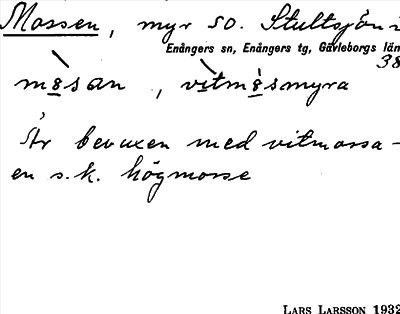 Mossen, myr so. Stultsjön i
Enångers sn, Enångers tg, Gävleborgs län
38
mo̲san, vi̲tmo̲smyra
Är bevuxen med vitmossa -
en s.k. högmosse
LARS LARSSON 1932